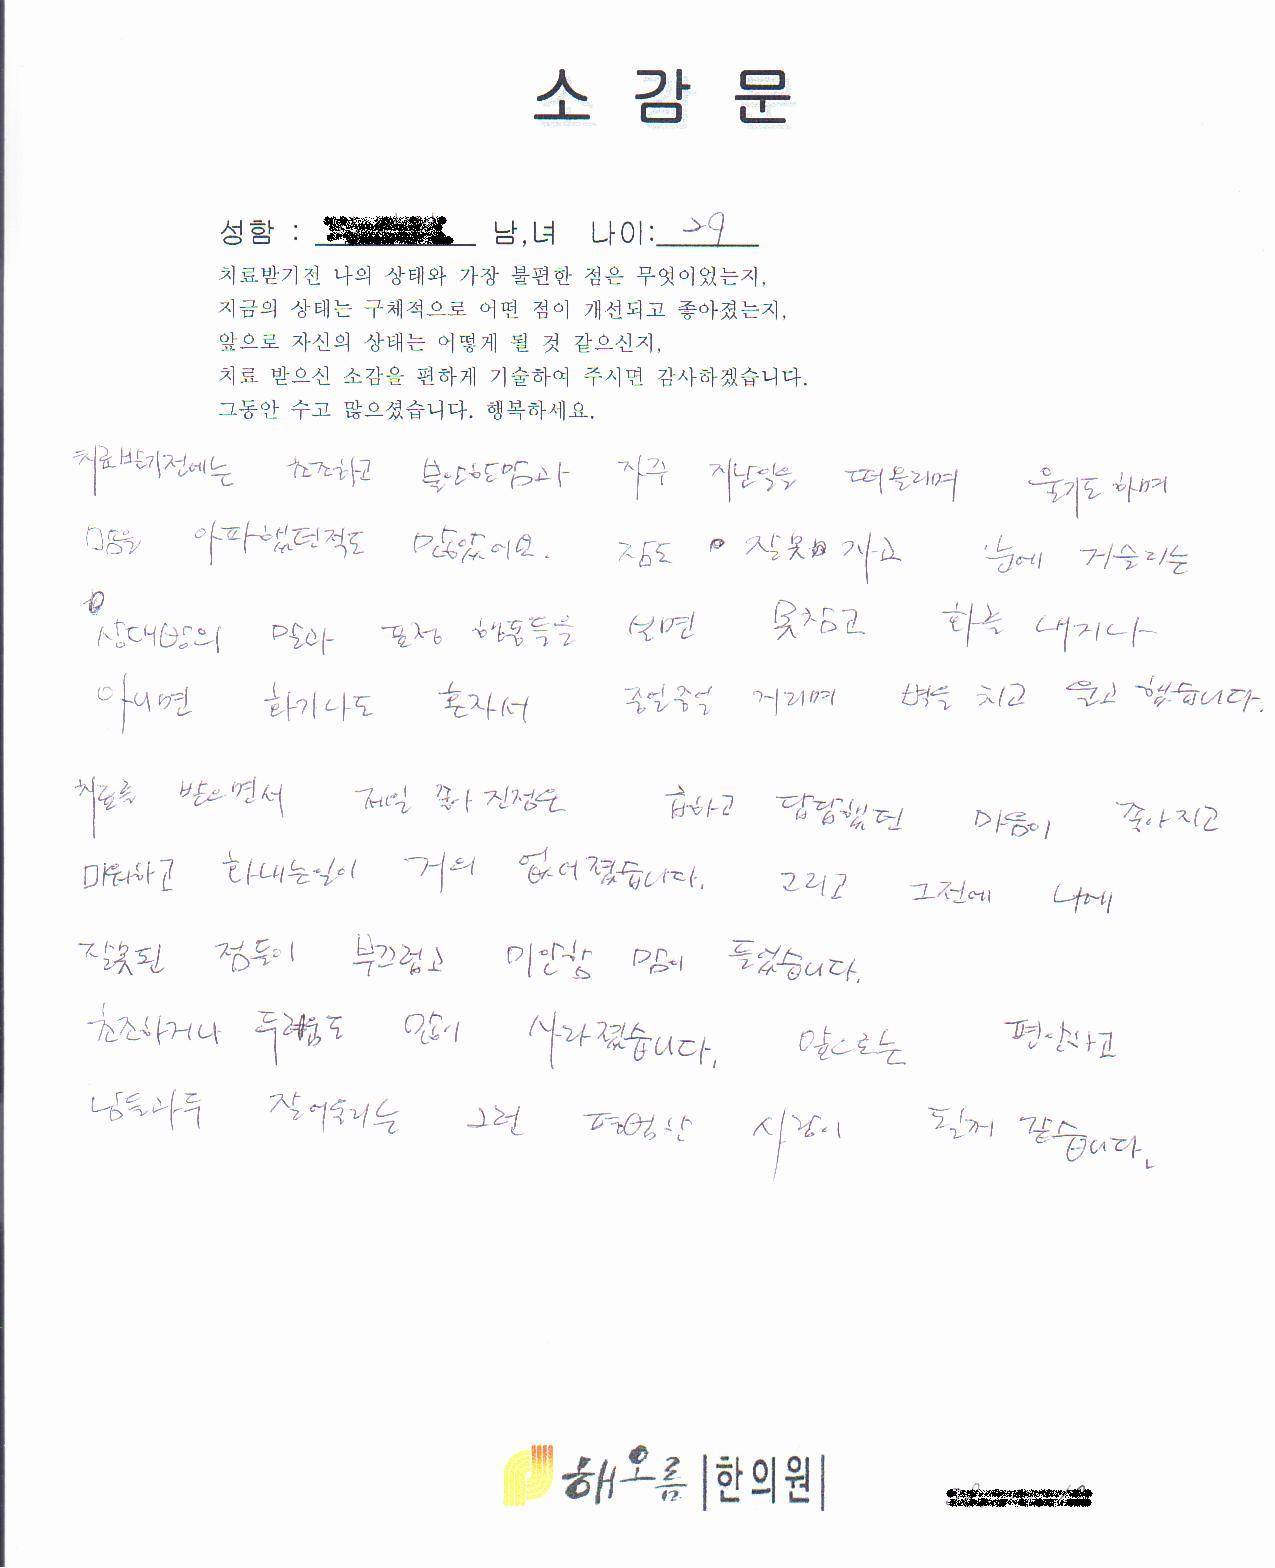 소 감 문
성함 : 남,녀 나이: 29
치료받기전 나의 상태와 가장 불편한 점은 무엇이었는지,
지금의 상태는 구체적으로 어떤 점이 개선되고 좋아졌는지,
앞으로 자신의 상태는 어떻게 될 것 같으신지,
치료 받으신 소감을 편하게 기술하여 주시면 감사하겠습니다.
그동안 수고 많으셨습니다. 행복하세요.
치료받기전에는 초조하고 불안한맘과 자주 지난일을 떠올리며 울기도 하며
맘을 아파했던적도 많았어요. 잠도 잘못 자고 눈에 거슬리는
상대방의 말과 표정 행동들을 보면 못참고 화를 내지나
아니면 화가나도 혼자서 중얼중얼 거리며 벽을 치고 울고 했습니다.
치료를 받으면서 제일 좋아진점은 급하고 답답했던 마음이 좋아지고
미워하고 화내는일이 거의 없어졌습니다. 그리고 그전에 나에
잘못된 점들이 부끄럽고 미안함 맘이 들었습니다.
초조하거나 두려움도 많이 사라졌습니다. 앞으로는 편안하고
남들과두 잘어울리는 그런 평범한 사람이 될께 같습니다.
해오름 한의원